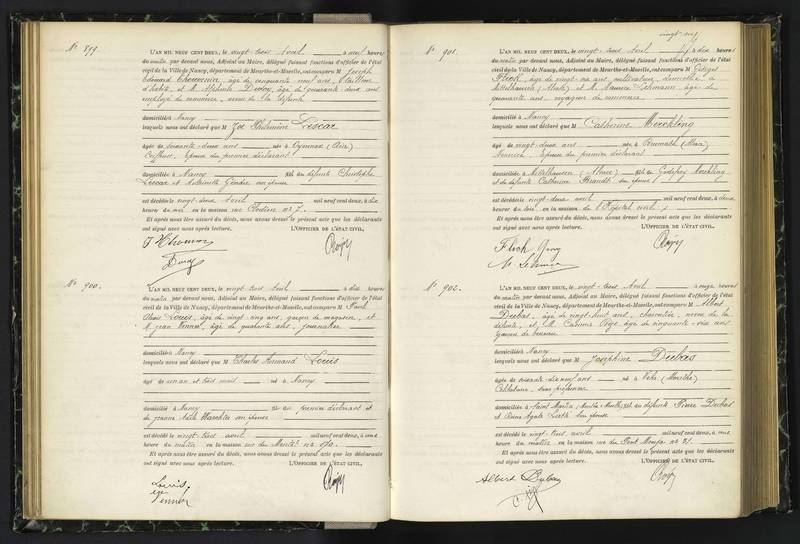 No 899.
L'AN MIL NEUF CENT DEUX, le vingt trois avril à neuf heures
du matin par devant nous, Adjoint au Maire, délégué faisant fonctions d'officier de l'état
civil de la Ville de Nancy, département de Meurthe-et-Moselle, ont comparu M Joseph
Edouard âgé de cinquante neuf ans,
d'habits, et M. Alphonse âgé de quarante deux ans
employé de commerce, de la défunte
domiciliés à Nancy
lesquels nous ont déclaré que M Zoé Philomène Lescar
âgée de soixante deux ans née à Oyonnax (Ain)
épouse du premier déclarant
domiciliée à Nancy fille de défunts Christophe
Lescar et Antoinette
est décédée vingt deux avril mil neuf cent deux, à dix
heures du soir en la maison rue no 7.
Et après nous être assuré du décès, nous avons dressé le présent acte que les déclarants
ont signé avec nous après lecture. L'OFFICIER DE L'ÉTAT CIVIL,
No 900.
L'AN MIL NEUF CENT DEUX, le vingt trois avril à dix heures
du matin par devant nous, Adjoint au Maire, délégué faisant fonctions d'officier de l'état
civil de la Ville de Nancy, département de Meurthe-et-Moselle, ont comparu M Paul
Louis, âgé de vingt cinq ans, garçon de magasin, et
M. Jean âgé de quarante ans, journalier
domiciliés à Nancy
lesquels nous ont déclaré que M Charles Armand Louis
âgé de un an et trois mois né à Nancy
domicilié à Nancy fils du premier déclarant et
de Jeanne son épouse
est décédé le vingt trois avril mil neuf cent deux, à une
heure du matin en la maison rue du
Et après nous être assuré du décès, nous avons dressé le présent acte que les déclarants
ont signé avec nous après lecture. L'OFFICIER DE L'ÉTAT CIVIL,
Louis
No 901.
L'AN MIL NEUF CENT DEUX, le vingt-trois avril à dix heures
du matin par devant nous, Adjoint au Maire, délégué faisant fonctions d'officier de l'état
civil de la Ville de Nancy, département de Meurthe-et-Moselle, ont comparu M Georges
Floch, âgé de vingt-six ans, cultivateur, domicilié à
Mittelhausen (Alsace) et M. Maurice Lehmann âgé de
quarante ans, voyageur de commerce
domicilié à Nancy
lesquels nous ont déclaré que M Catherine Moechling
âgée de vingt-deux ans née à Brumath (Alsace)
épouse du premier déclarant
domiciliée à Mittelhausen (Alsace) fille de Godefroy Moechling
et de défunte Catherine son épouse
est décédée le vingt-deux avril mil neuf cent deux, à deux
heures du soir en la maison de l'Hôpital civil
Et après nous être assuré du décès, nous avons dressé le présent acte que les déclarants
ont signé avec nous après lecture. L'OFFICIER DE L'ÉTAT CIVIL,
Floch
M. Lehmann
No 902.
L'AN MIL NEUF CENT DEUX, le vingt-trois avril à onze heures
du matin par devant nous, Adjoint au Maire, délégué faisant fonctions d'officier de l'état
civil de la Ville de Nancy, département de Meurthe-et-Moselle, ont comparu M Albert
Dubas, âgé de vingt-huit ans, charpentier, neveu de la
défunte, et M. âgé de cinquante-six ans
garçon de bureau
domiciliés à Nancy
lesquels nous ont déclaré que M Joséphine Dubas
âgée de soixante dix neuf ans née à Vého (Meurthe)
Célibataire, sans profession
domiciliée à Saint Martin (Meurthe & Moselle) fille de défunts Pierre Dubas
et son épouse
est décédée le vingt trois avril mil neuf cent deux, à une
heure du matin en la maison rue de Pont Mouja no 21.
Et après nous être assuré du décès, nous avons dressé le présent acte que les déclarants
ont signé avec nous après lecture. L'OFFICIER DE L'ÉTAT CIVIL,
Albert Dubas